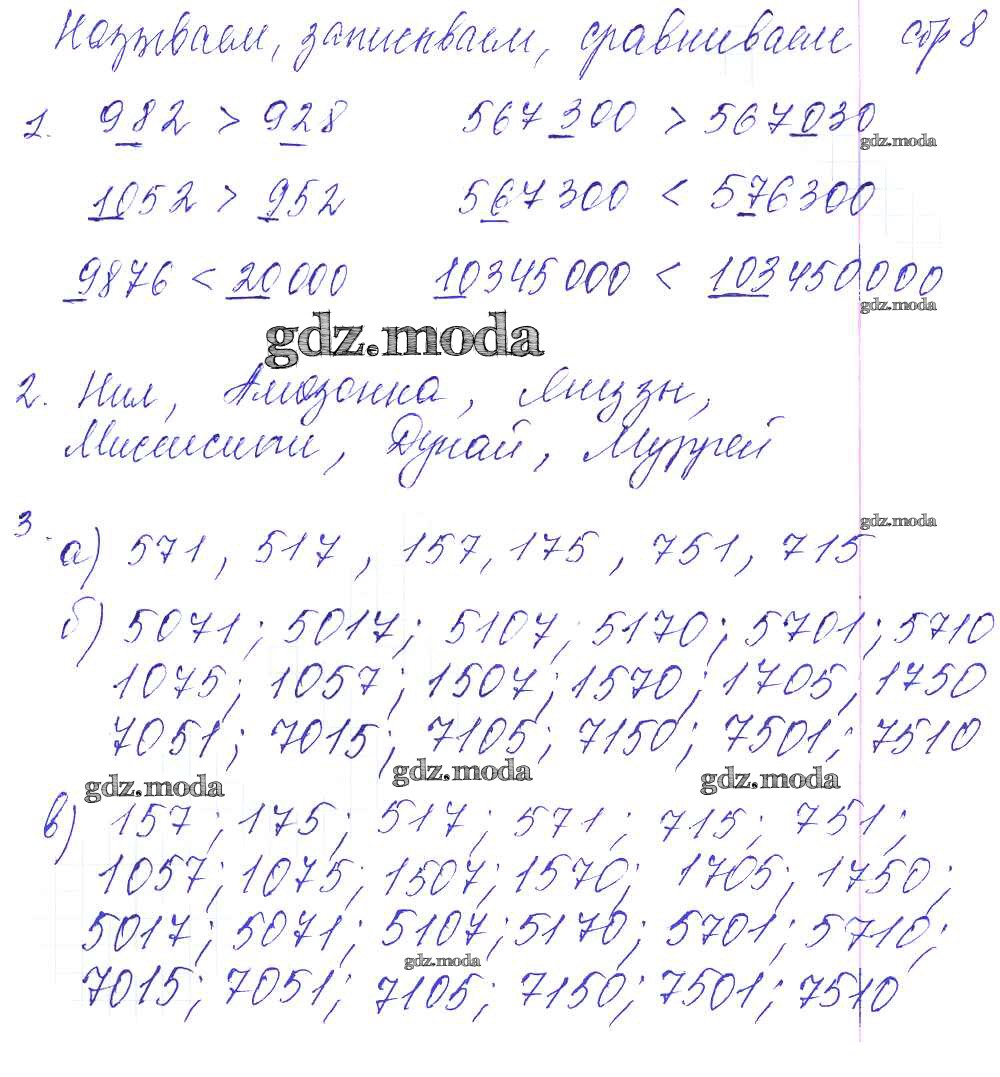 Называем, записываем, сравниваем стр 8
1. 982 > 928 567300 > 567030
gdz.moda
1052 > 952 567300 < 576300
9876 < 20000 10345000 < 103450000
gdz.moda
gdz.moda
2. Нил, Амазонка, Янцзы,
Миссисипи, Дунай, Муррей
gdz.moda
3. а) 571, 517, 157, 175, 751, 715
б) 5071; 5017; 5107; 5170; 5701; 5710
1075; 1057; 1507; 1570; 1705, 1750
7051; 7015; 7105; 7150; 7501; 7510
gdz.moda gdz.moda gdz.moda
в) 157; 175; 517; 571; 715; 751;
1057; 1075; 1507; 1570; 1705; 1750;
5017; 5071; 5107; 5170; 5701; 5710;
gdz.moda
7015; 7051; 7105; 7150; 7501; 7510